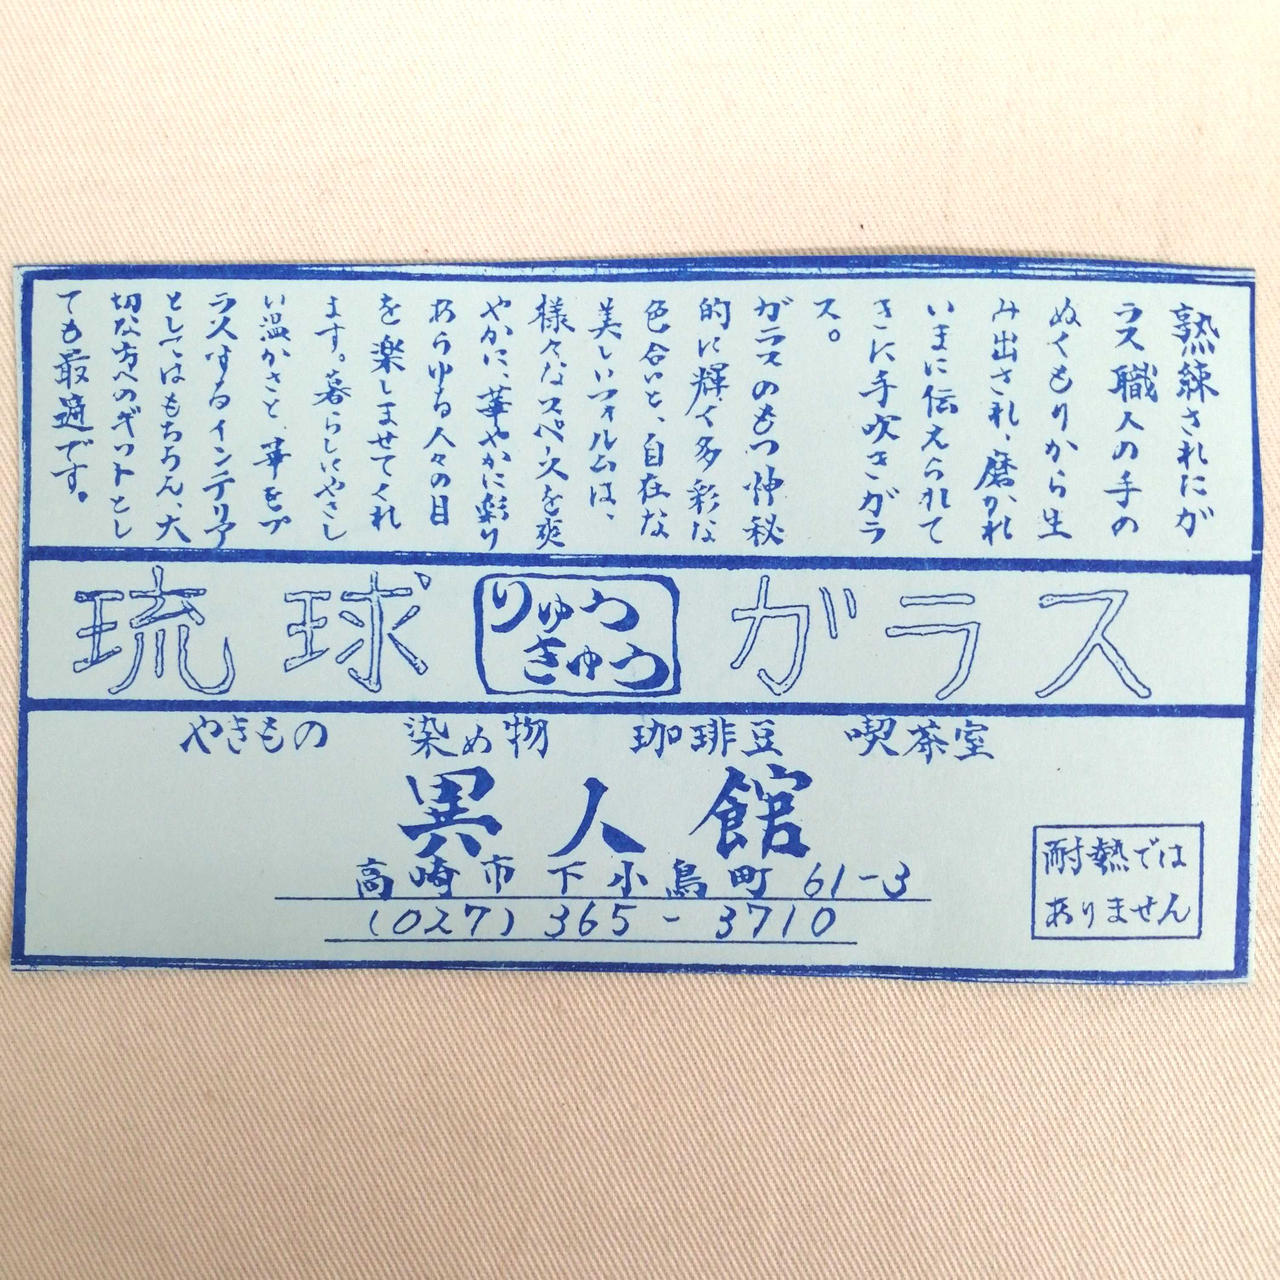 熟練されにが
ラス職人の手の
ぬくもりから生
み出され、磨かれ
いまに伝えられて
きに手吹きガラ
ス。
ガラスのもつ神秘
的に輝く多彩な
色合いと、自在な
美しいフォルムは、
様々なスペースを爽
やかに、華やかに彩り
あらゆる人々の目
を楽しませてくれ
ます。暮らしにやさし
い温かさと、華をプ
ラスするインテリア
としてはもちろん、大
切な方へのギフトとし
ても最適です。
琉球 りゅう きゅう ガラス
やきもの 染め物 珈琲豆 喫茶室
異人館
高崎市下小鳥町 61-3
(027) 365-3710
耐熱では
ありません